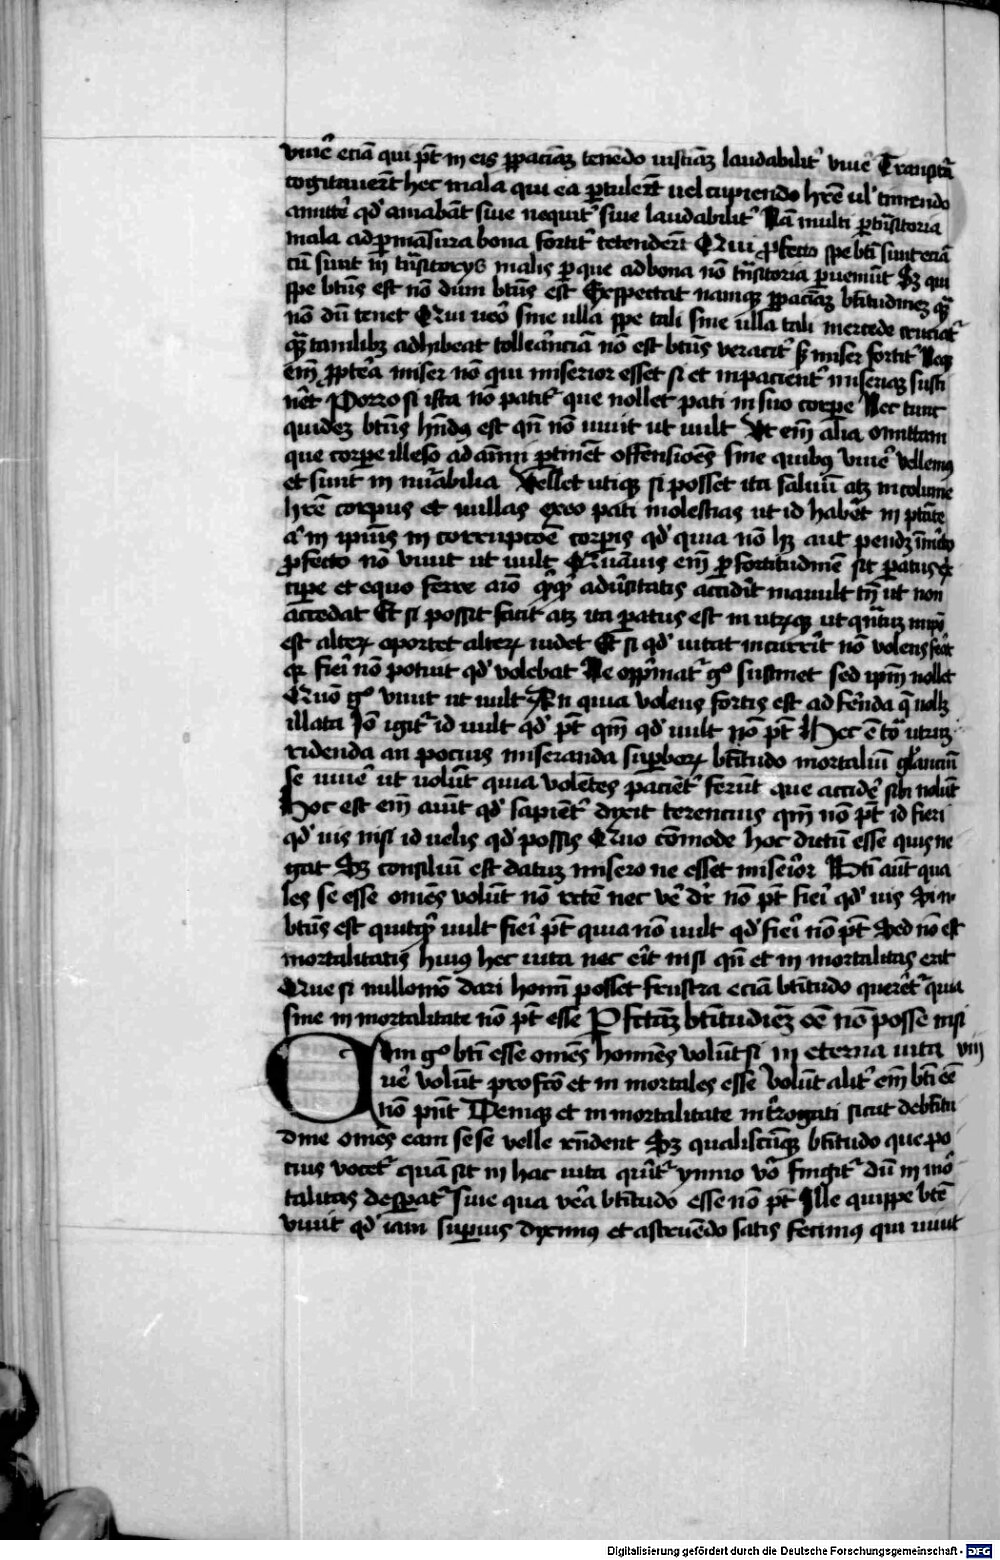 viuē eciā qui pt̄ in eis ꝑpaciāꝫ tenēdo iusticiāꝫ laudabilit᷑ viuē Transitā
cogitauer̄t hec mala qui ea ꝑtuler̄t uel cupiendo hr̄e ul᷑ timendo
amitte᷑ qd᷑ amabāt siue nequit᷑ siue laudabilit᷑ Nā multi ꝑ trāsitoria
mala ad ꝑmāsura bona fortit᷑ tetender̄t Qui ꝓfecto spe bt̄i sunt eciā
cū sunt in trāsitorys malis ꝑ que ad bona nō trāsitoria ꝑueniūt Sꝫ qui
spe bt̄us est nō dum bt̄us est Exspectat namqꝫ ꝑpaciāꝫ bt̄itudinēꝫ quā
nō dū tenet Qui ueo sine ulla spe tali sine ulla tali mercede cruciat᷑
quātamlibꝫ adhibeat tolleranciā nō est bt̄us veracit᷑ sꝫ miser fortit᷑ Neqꝫ
em̄ ꝓpterea miser nō qui miserior esset si et inpacient᷑ miseriaꝫ susti
nēt Porro si ista nō patit᷑ que nollet pati in suo corpe Nec tunc
quideꝫ bt̄us hn̄dus est qn̄ nō uiuit ut uult Ut em̄ alia omittam
que corpe illeso ad aīmi ptinēt offensiōes sine quibꝫ viue᷑ vellemꝰ
et sunt in nūabilia Vellet utiqꝫ si posset ita saluū atꝫ incolume
hr̄e corpus et nullas ex eo pati molestias ut id habet in ptāte
at᷑ in ipiꝰ in corrupcōe corpis qd᷑ quia nō hꝫ aut pendꝫ
ꝓfecto nō viuit ut uult Quāuis em̄ ꝑ fortitudinē sit ꝑatus ex
cipe et equo ferre aīo quicqd᷑ aduersitatis acciderit mauult tn̄ ut non
accedat Et si possit facit atꝫ ita ꝑatus est in utrūqꝫ ut qn̄tuꝫ in ipo
est alteꝝ oportet alteꝝ uidet Et si qd᷑ uitat incurrit nō volens fert
qꝛ fieri nō potuit qd᷑ volebat Ne opprimat᷑ gͦ sustinet sed ipm̄ nollet
Quō gͦ viuit ut uult An quia volens fortis est ad ferēda que nollꝫ
illata Iō igit᷑ id uult qd᷑ pt̄ qm̄ qd᷑ uult nō pt̄ Hec ē tota utruꝫ
ridenda an pocius miseranda suꝑboꝝ bt̄itudo mortaliū gloriancium
se viue᷑ ut uolūt quia volētes pacient᷑ ferūt que accide᷑ sibi nolūt
Hoc est em̄ aiūt qd᷑ sapient᷑ dixit terencius qm̄ nō pt̄ id fieri
qd᷑ uis nisi id uelis qd᷑ possis Quo cōmode hoc dictū esse quis ne
gat Sꝫ consiliū est datuꝫ misero ne esset miserior Bt̄i aūt qua
les se esse omēs volūt nō rcte nec vē dr̄ nō pt̄ fieri qd᷑ uis Si n̄
bt̄us est quicqd᷑ uult fieri pt̄ quia nō uult qd᷑ fieri nō pt̄ Sed nō est
mortalitatis huiꝰ hec uita nec erit nisi qn̄ et in mortalitas erit
Que si nullomō dari homī posset frustra eciā bt̄itudo querer᷑ quia
sine in mortalitate nō pt̄ esse Pfctāꝫ bt̄itudinēꝫ eē nō posse nisi
Cum gͦ bt̄i esse omēs homīes volūt si in eterna uita viii
uē volūt profcō et in mortales esse volūt alit᷑ em̄ bt̄i eē
nō pnt̄ Deniqꝫ et in mortalitate int̄rogati sicut de bt̄itu
dine omēs eam sese velle rn̄dent Sꝫ qualiscūqꝫ bt̄itudo que po
cius vocet᷑ quā sit in hac uita querit᷑ ymmo vō fingit᷑ dū in mor
talitas despat᷑ siue qua vera bt̄itudo esse nō pt̄ Ille quippe bt̄e
viuit qd᷑ iam supius diximꝰ et astruēdo satis fecimꝰ qui uiuit
Digitalisierung gefördert durch die Deutsche Forschungsgemeinschaft - DFG